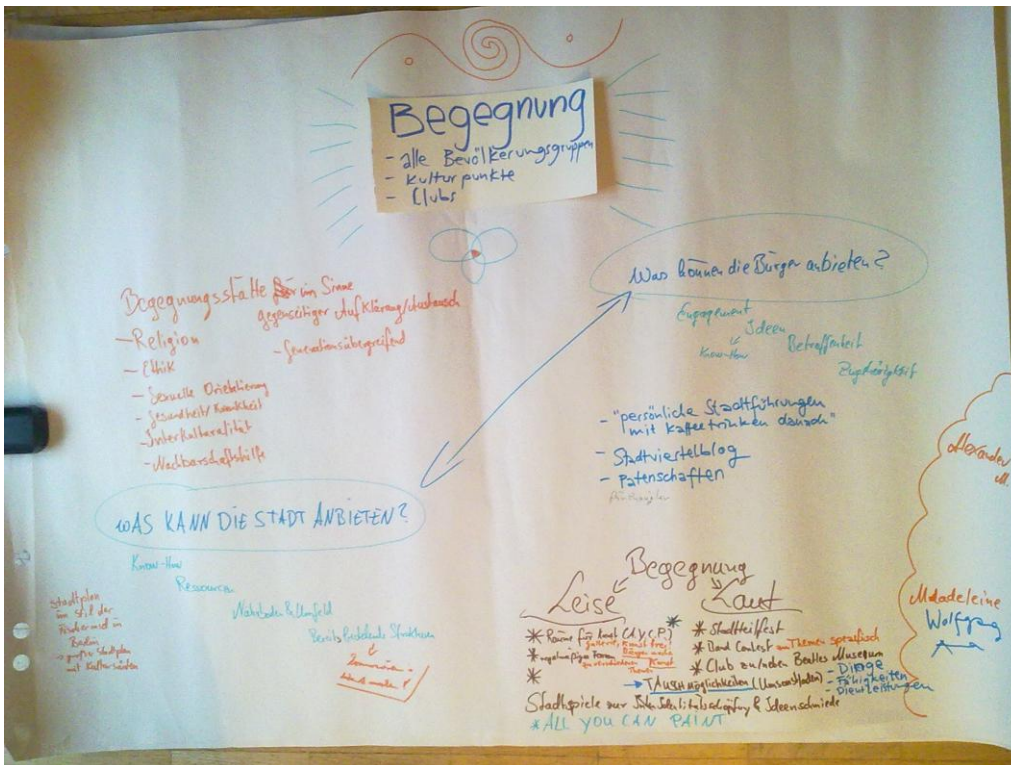 Begegnung
- alle Bevölkerungsgruppen
- Kulturpunkte
- Clubs
Begegnungsstätte im Sinne
gegenseitiger Aufklärung/Austausch
- Religion
- Generationsübergreifend
- Ethik
- Sexuelle Orientierung
- Gesundheit/Krankheit
- Interkulturalität
- Nachbarschaftshilfe
Was können die Bürger anbieten?
Engagement
Ideen
Know-How
Betroffenheit
Zugehörigkeit
- "persönliche Stadtführungen
mit Kaffeetrinken danach"
- Stadtviertelblog
- Patenschaften
WAS KANN DIE STADT ANBIETEN?
Know-How
Ressourcen
Bereits bestehende Strukturen
Stadtplan
im Stil der
in
Berlin
großer Stadtplan
mit
Begegnung
Leise
Laut
* Räume für Kunst (A.Y.C.P.)
* regelmäßige
*
* Stadtteilfest
* Band Contest Themen spezifisch
* Club zu/neben Beatles Museum
→ TAUSCHmöglichkeiten (Umsonstladen) - Dinge
- Fähigkeiten
- Dienstleistungen
Stadtspiele zur & Ideenschmiede
* ALL YOU CAN PAINT
Alexander
M.
Madeleine
Wolfgang